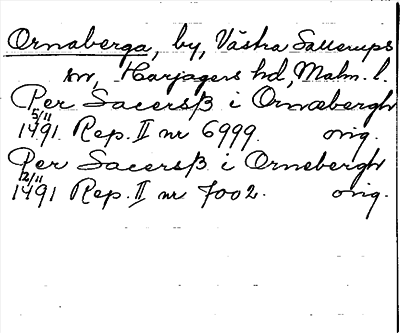 Ornaberga, by, Västra Sallerups
sn, Harjagers hd, Malm. l.
Per Sacersß i Ornæbergh
5/11 1491 Rep. II nr 6999. orig.
Per Sacersß i Ornebergh
12/11 1491 Rep. II nr 7002. orig.